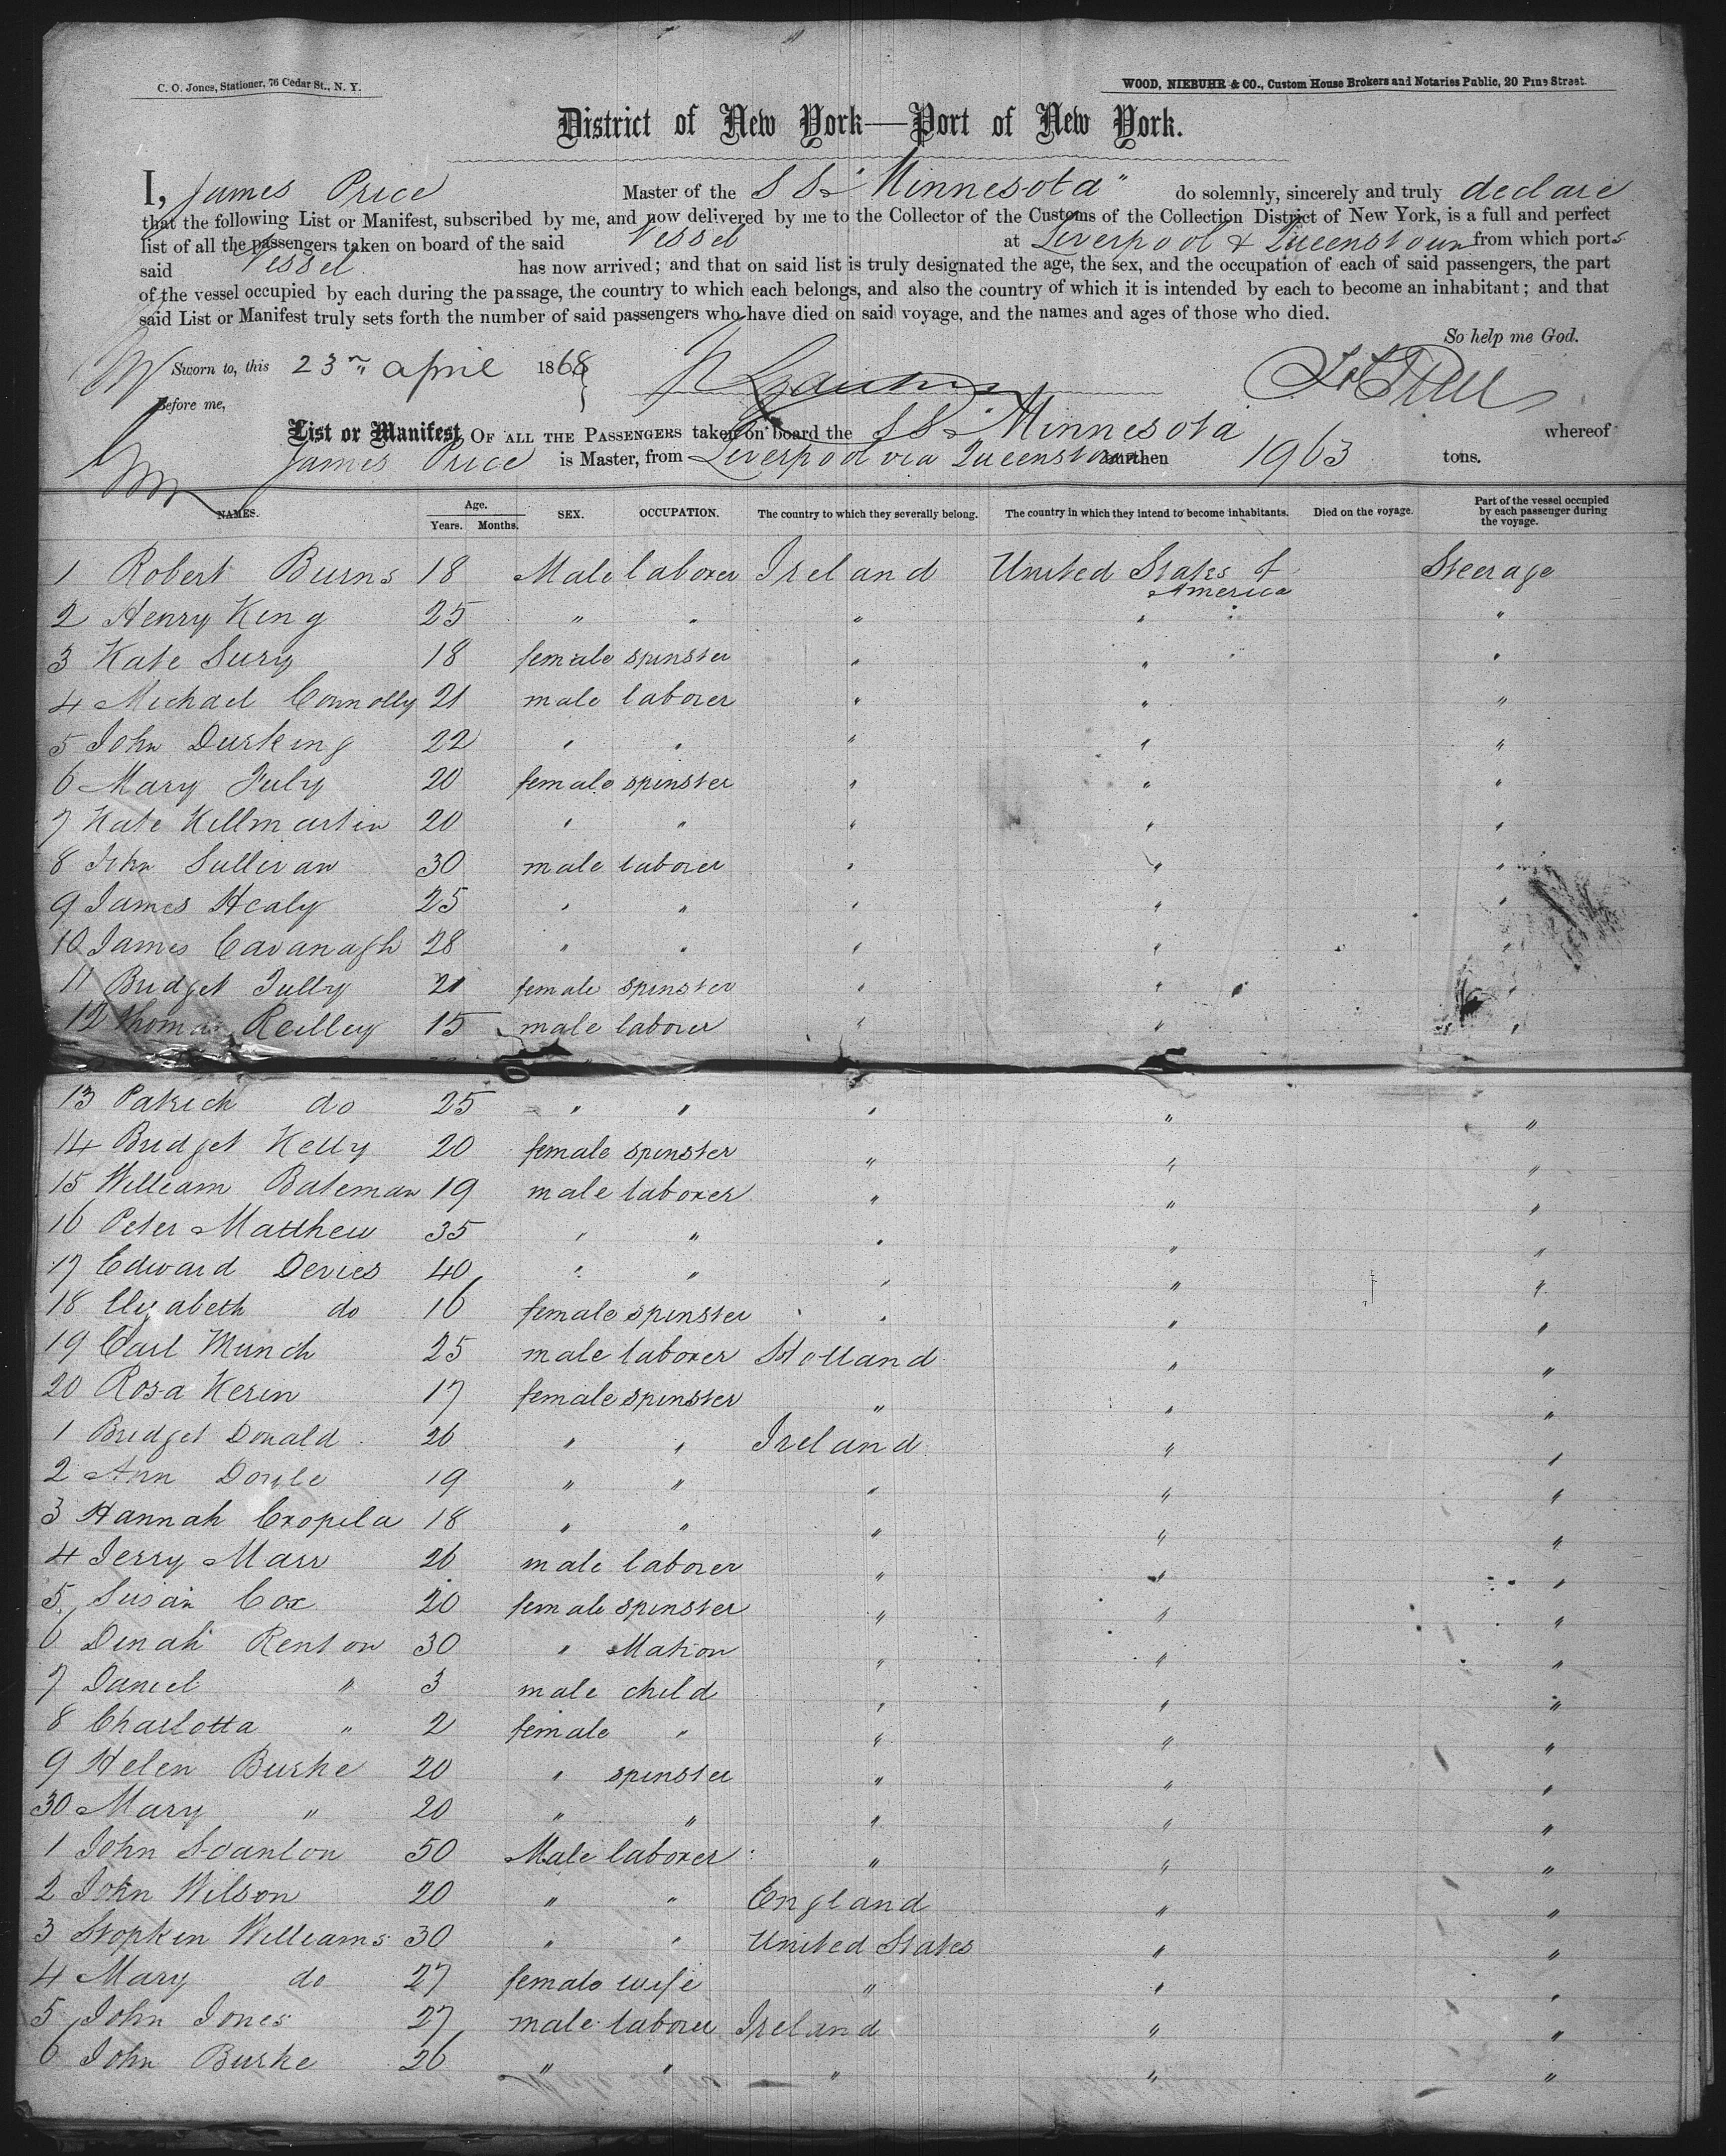 C. O. Jones, Stationer, 76 Cedar St., N. Y.
WOOD, NIEBUHR & CO., Custom House Brokers and Notaries Public, 20 Pine Street.
District of New York—Port of New York.
I, James Price Master of the S S "Minnesota" do solemnly, sincerely and truly declare
that the following List or Manifest, subscribed by me, and now delivered by me to the Collector of the Customs of the Collection District of New York, is a full and perfect
list of all the passengers taken on board of the said Vessel at Liverpool & Queenstown from which ports
said Vessel has now arrived; and that on said list is truly designated the age, the sex, and the occupation of each of said passengers, the part
of the vessel occupied by each during the passage, the country to which each belongs, and also the country of which it is intended by each to become an inhabitant; and that
said List or Manifest truly sets forth the number of said passengers who have died on said voyage, and the names and ages of those who died.
So help me God.
Sworn to, this 23rd April 1868
Before me,
List or Manifest, OF ALL THE PASSENGERS taken on board the SS "Minnesota whereof
James Price is Master, from Liverpool via Queenstown burthen 1963 tons.
NAMES. Age. Years. Months. SEX. OCCUPATION. The country to which they severally belong. The country in which they intend to become inhabitants. Died on the voyage. Part of the vessel occupied by each passenger during the voyage.
1 Robert Burns 18 Male laborer Ireland United States of America Steerage
2 Henry King 25 " " " " "
3 Kate Sury 18 female spinster " " "
4 Michael Connolly 21 male laborer " " "
5 John Durking 22 " " " " "
6 Mary Fuly 20 female spinster " " "
7 Kate Killmartin 20 " " " " "
8 John Sullivan 30 male laborer " " "
9 James Healy 25 " " " " "
10 James Cavanagh 28 " " " " "
11 Bridget Tully 21 female spinster " " "
12 Thomas Reilley 15 male laborer " " "
13 Patrick do 25 " " " " "
14 Bridget Kelly 20 female spinster " " "
15 William Bateman 19 male laborer " " "
16 Peter Matthew 35 " " " " "
17 Edward Devies 40 " " " " "
18 Elyzabeth do 16 female spinster " " "
19 Carl Munch 25 male laborer Holland " "
20 Rosa Kerin 17 female spinster " " "
1 Bridget Donald 26 " " Ireland " "
2 Ann Doyle 19 " " " " "
3 Hannah Cropila 18 " " " " "
4 Jerry Marr 26 male laborer " " "
5 Susan Cox 20 female spinster " " "
6 Dinah Renton 30 " Matron " " "
7 Daniel " 3 male child " " "
8 Charlotta " 2 female " " " "
9 Helen Burke 20 " spinster " " "
30 Mary " 20 " " " " "
1 John Scanlon 50 Male laborer " " "
2 John Wilson 20 " " England " "
3 Stopken Williams 30 " " United States " "
4 Mary do 27 female wife " " "
5 John Jones 27 male laborer Ireland " "
6 John Burke 26 " " " " "